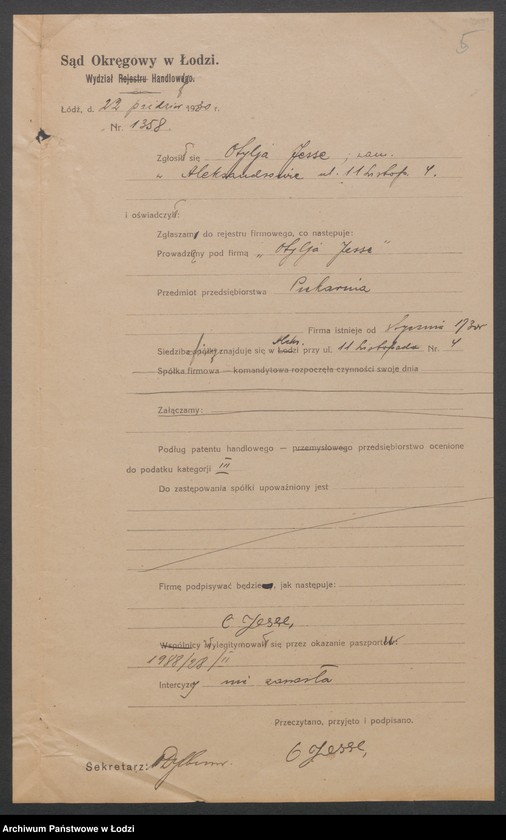 5
Sąd Okręgowy w Łodzi.
Wydział Rejestru Handlowego.
Łódź, d. 22 paździer 1930 r.
Nr. 1358.
Zgłosił się Otylja Jesse, zam.
w Aleksandrowie ul. 11 Listop. 4.
i oświadczył:
Zgłaszam do rejestru firmowego, co następuje:
Prowadzimy pod firmą „Otylja Jesse"
Przedmiot przedsiębiorstwa Piekarnia
Firma istnieje od stycznia
Aleks.
Siedziba spółki znajduje się w Łodzi przy ul. 11 Listopada Nr. 4
Spółka firmowa — komandytowa rozpoczęła czynności swoje dnia
Załączamy:
Podług patentu handlowego — przemysłowego przedsiębiorstwo ocenione
do podatku kategorji III
Do zastępowania spółki upoważniony jest
Firmę podpisywać będzie, jak następuje:
O Jesse,
Wspólnicy wylegitymowali się przez okazanie paszportu
1988/28/II
Intercyzy nie zawarła
Przeczytano, przyjęto i podpisano.
Sekretarz:
O Jesse,
Archiwum Państwowe w Łodzi